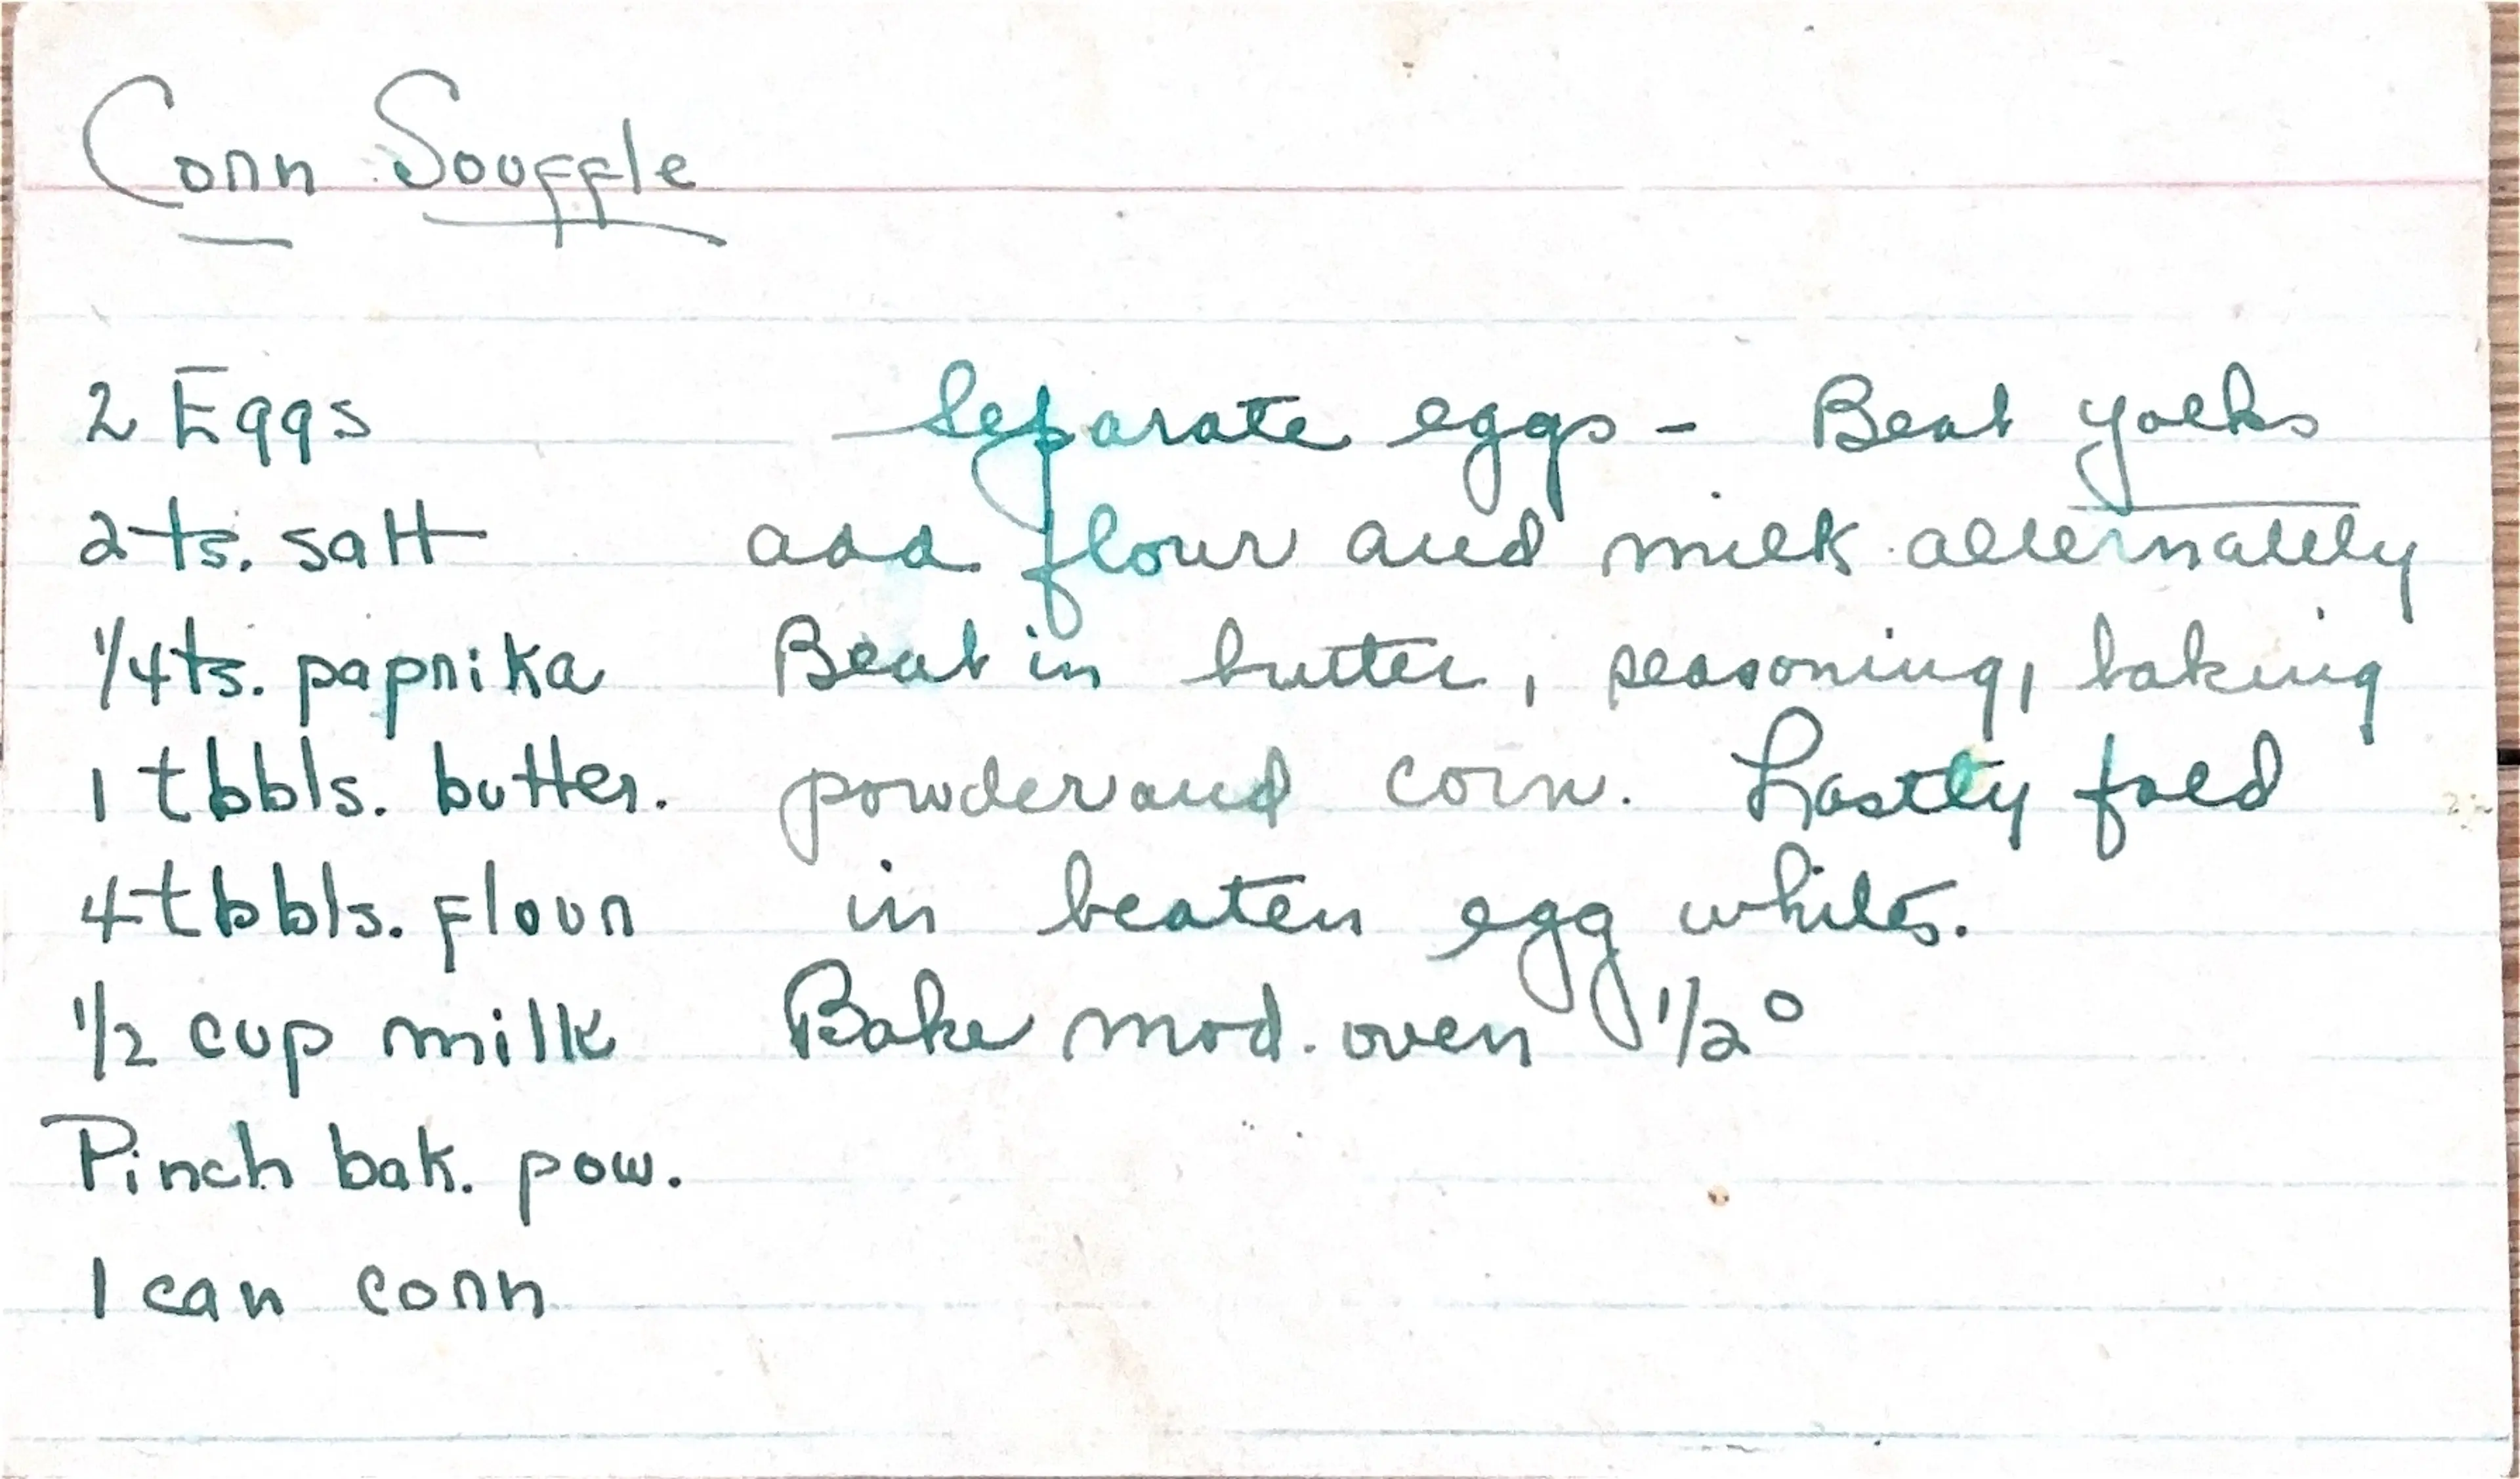 Corn Souffle
2 Eggs
2 ts. salt
1/4 ts. paprika
1 tbbls. butter.
4 tbbls. flour
1/2 cup milk
Pinch bak. pow.
1 can corn
Separate eggs - Beat yolks
add flour and milk alternately
Beat in butter, seasoning, baking
powder and corn. Lastly fold
in beaten egg whites.
Bake mod. oven 1/2°